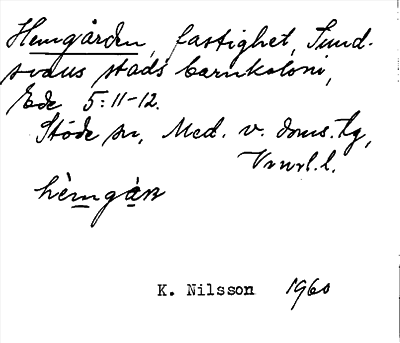 Hemgården, fastighet, Sund-
svalls stads barnkoloni,
Ede 5:11-12.
Stöde sn, Med. v. doms. tg,
Vnorl. l.
hèmgàɳ
K. Nilsson 1960